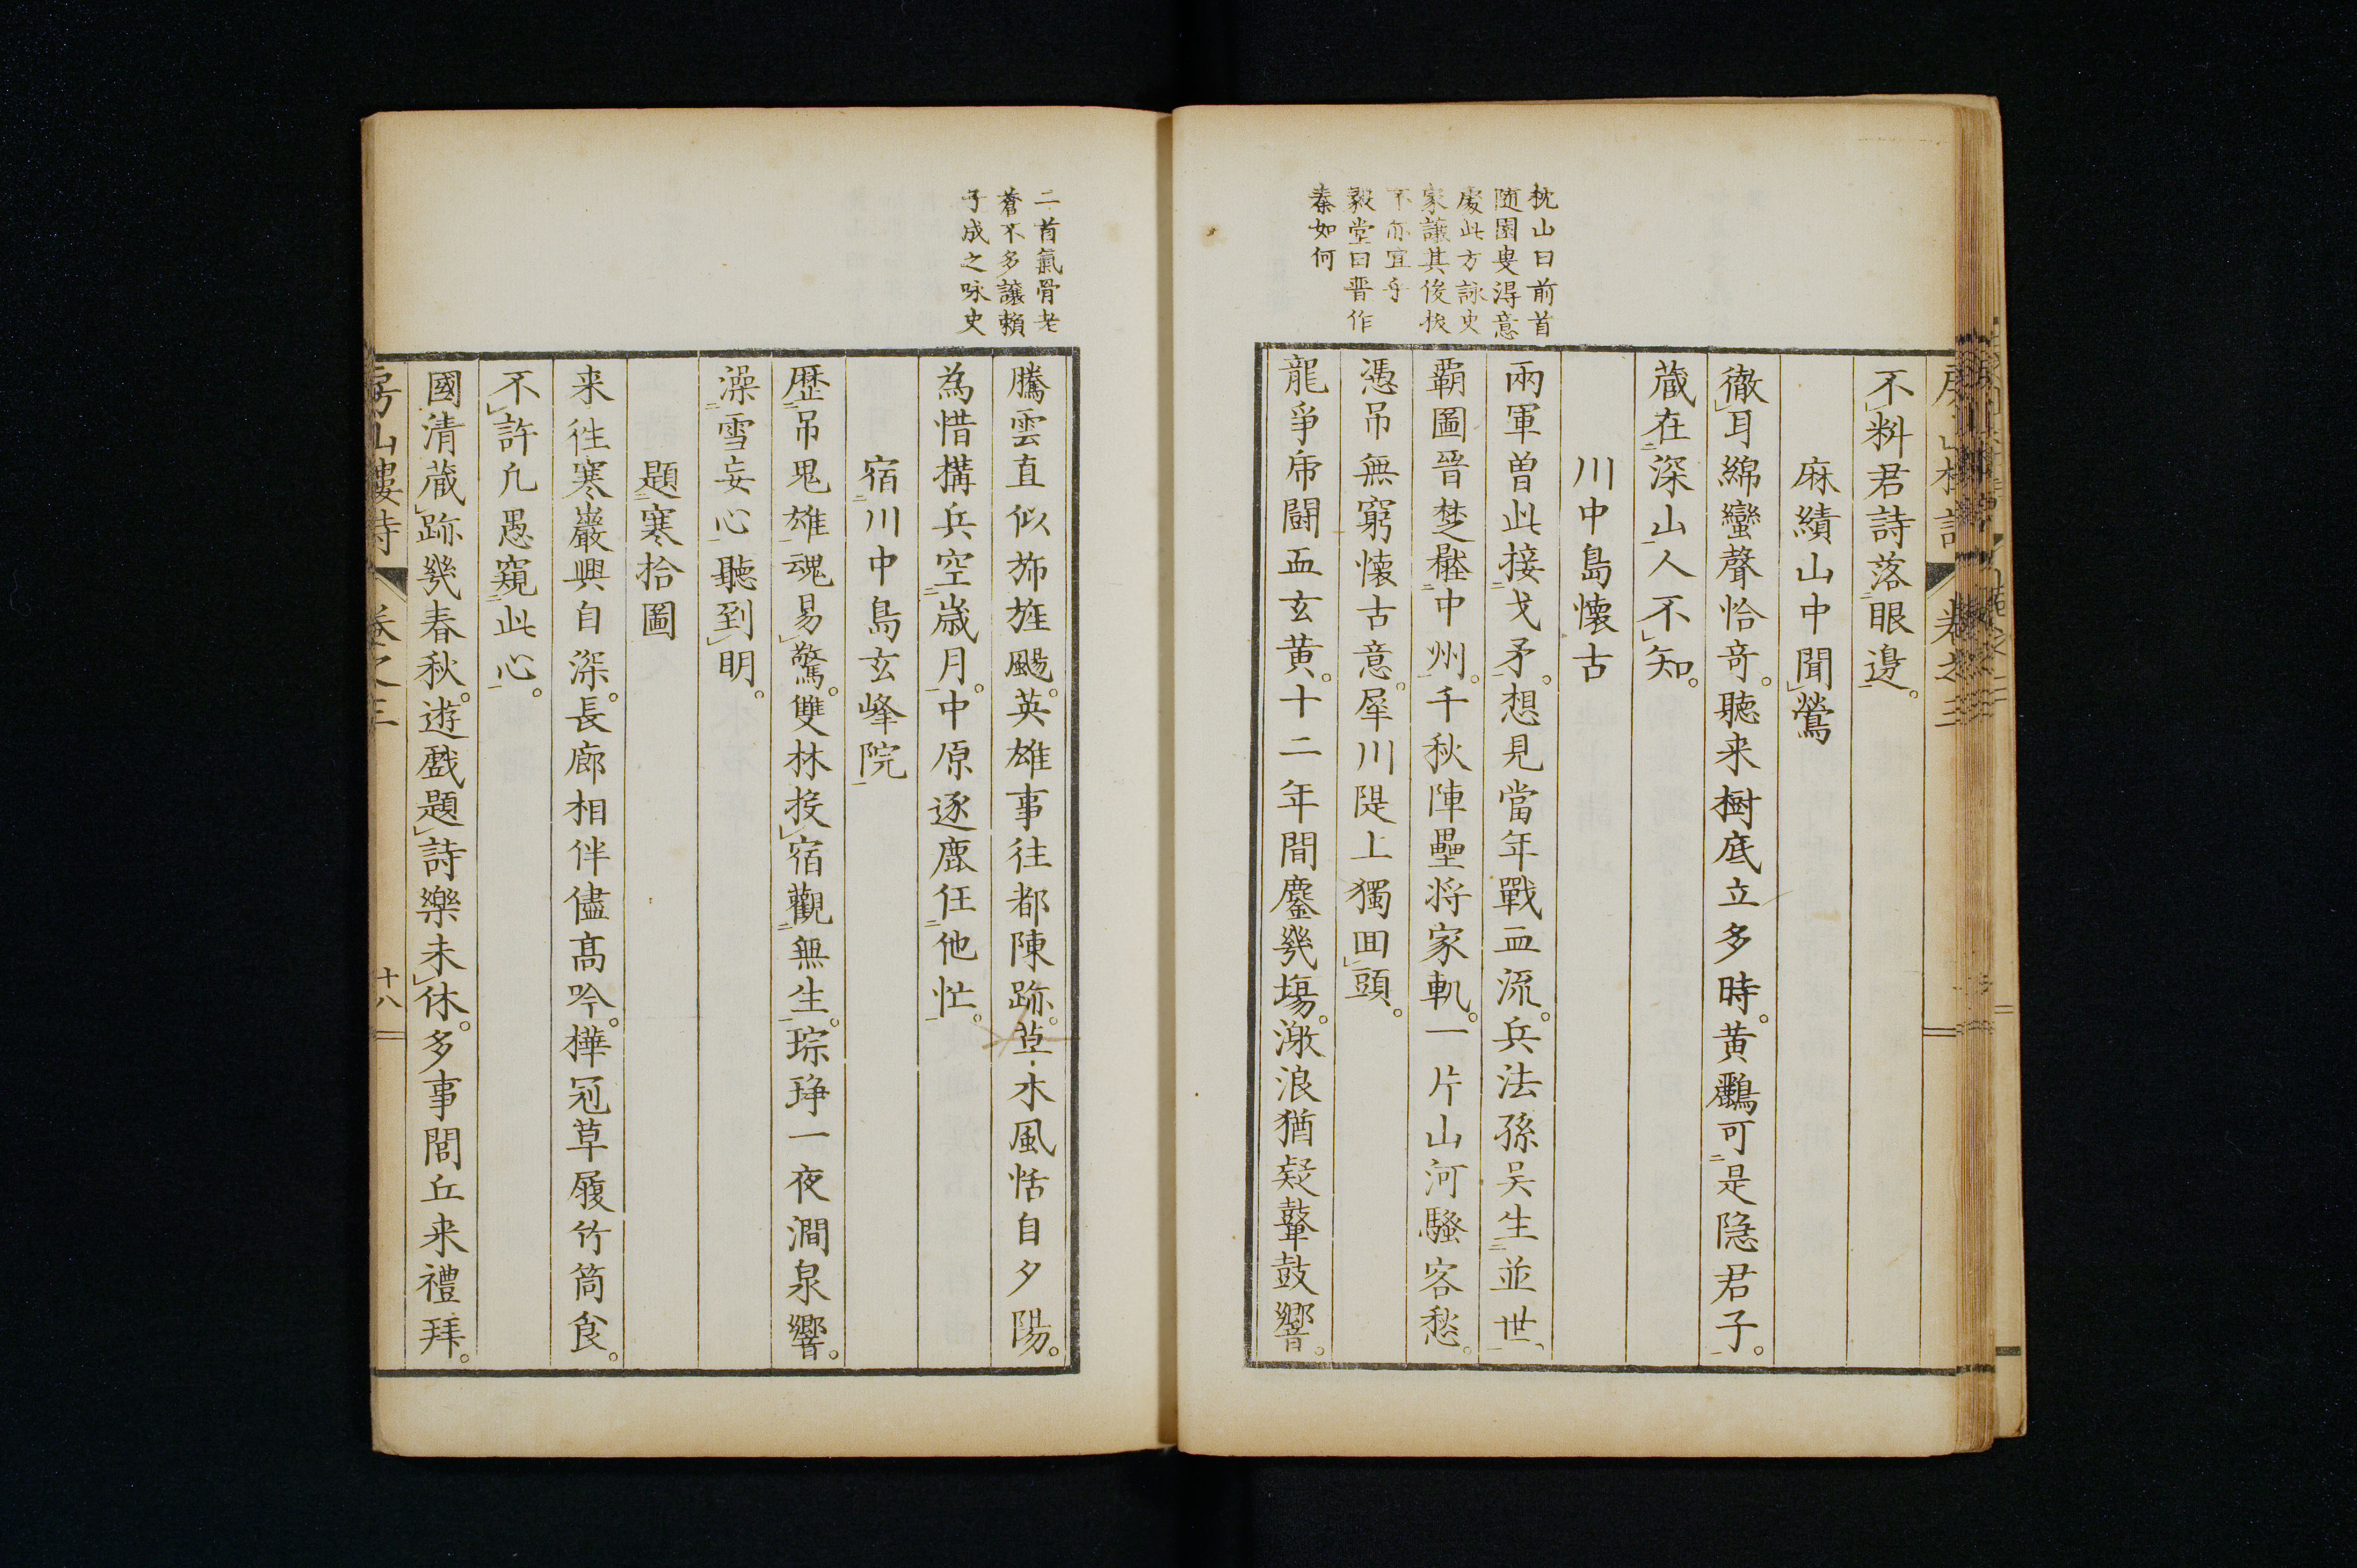 枕山曰前首
随園叟得意
處此方詠史
家讓其後拔
不亦宜乎
毅堂曰晋作
秦如何
不料君詩落眼邊。
麻績山中聞鶯
徹耳綿蠻聲恰奇。聽来樹底立多時。黄鸝可是隐君子。
蔵在深山人不知。
川中島懐古
兩軍曽此接戈矛。想見當年戰血流。兵法孫吴生並世、
覇圖晉楚継中州。千秋陣壘将家軌。一片山河騷客愁。
憑吊無窮懐古意。犀川隄上獨囬頭。
龍爭乕闘血玄黄。十二年間鏖幾塲。激浪猶疑鼙鼓響。
二首氣骨老
蒼不多讓頼
子成之咏史
騰雲直似斾旌颺。英雄事往都陳跡。草木風恬自夕陽。
為惜搆兵空歳月。中原逐鹿任他忙。
宿川中島玄峰院
歴吊鬼雄魂易驚。雙林投宿觀無生。琮琤一夜澗泉響。
澡雪妄心聽到明。
題寒拾圖
来往寒巖興自深。長廊相伴儘髙吟。樺冠草履竹筒食。
不許凡愚窺此心。
國清蔵跡幾春秋。遊戯題詩樂未休。多事閭丘来禮拜。
房山樓詩
卷之三
十八